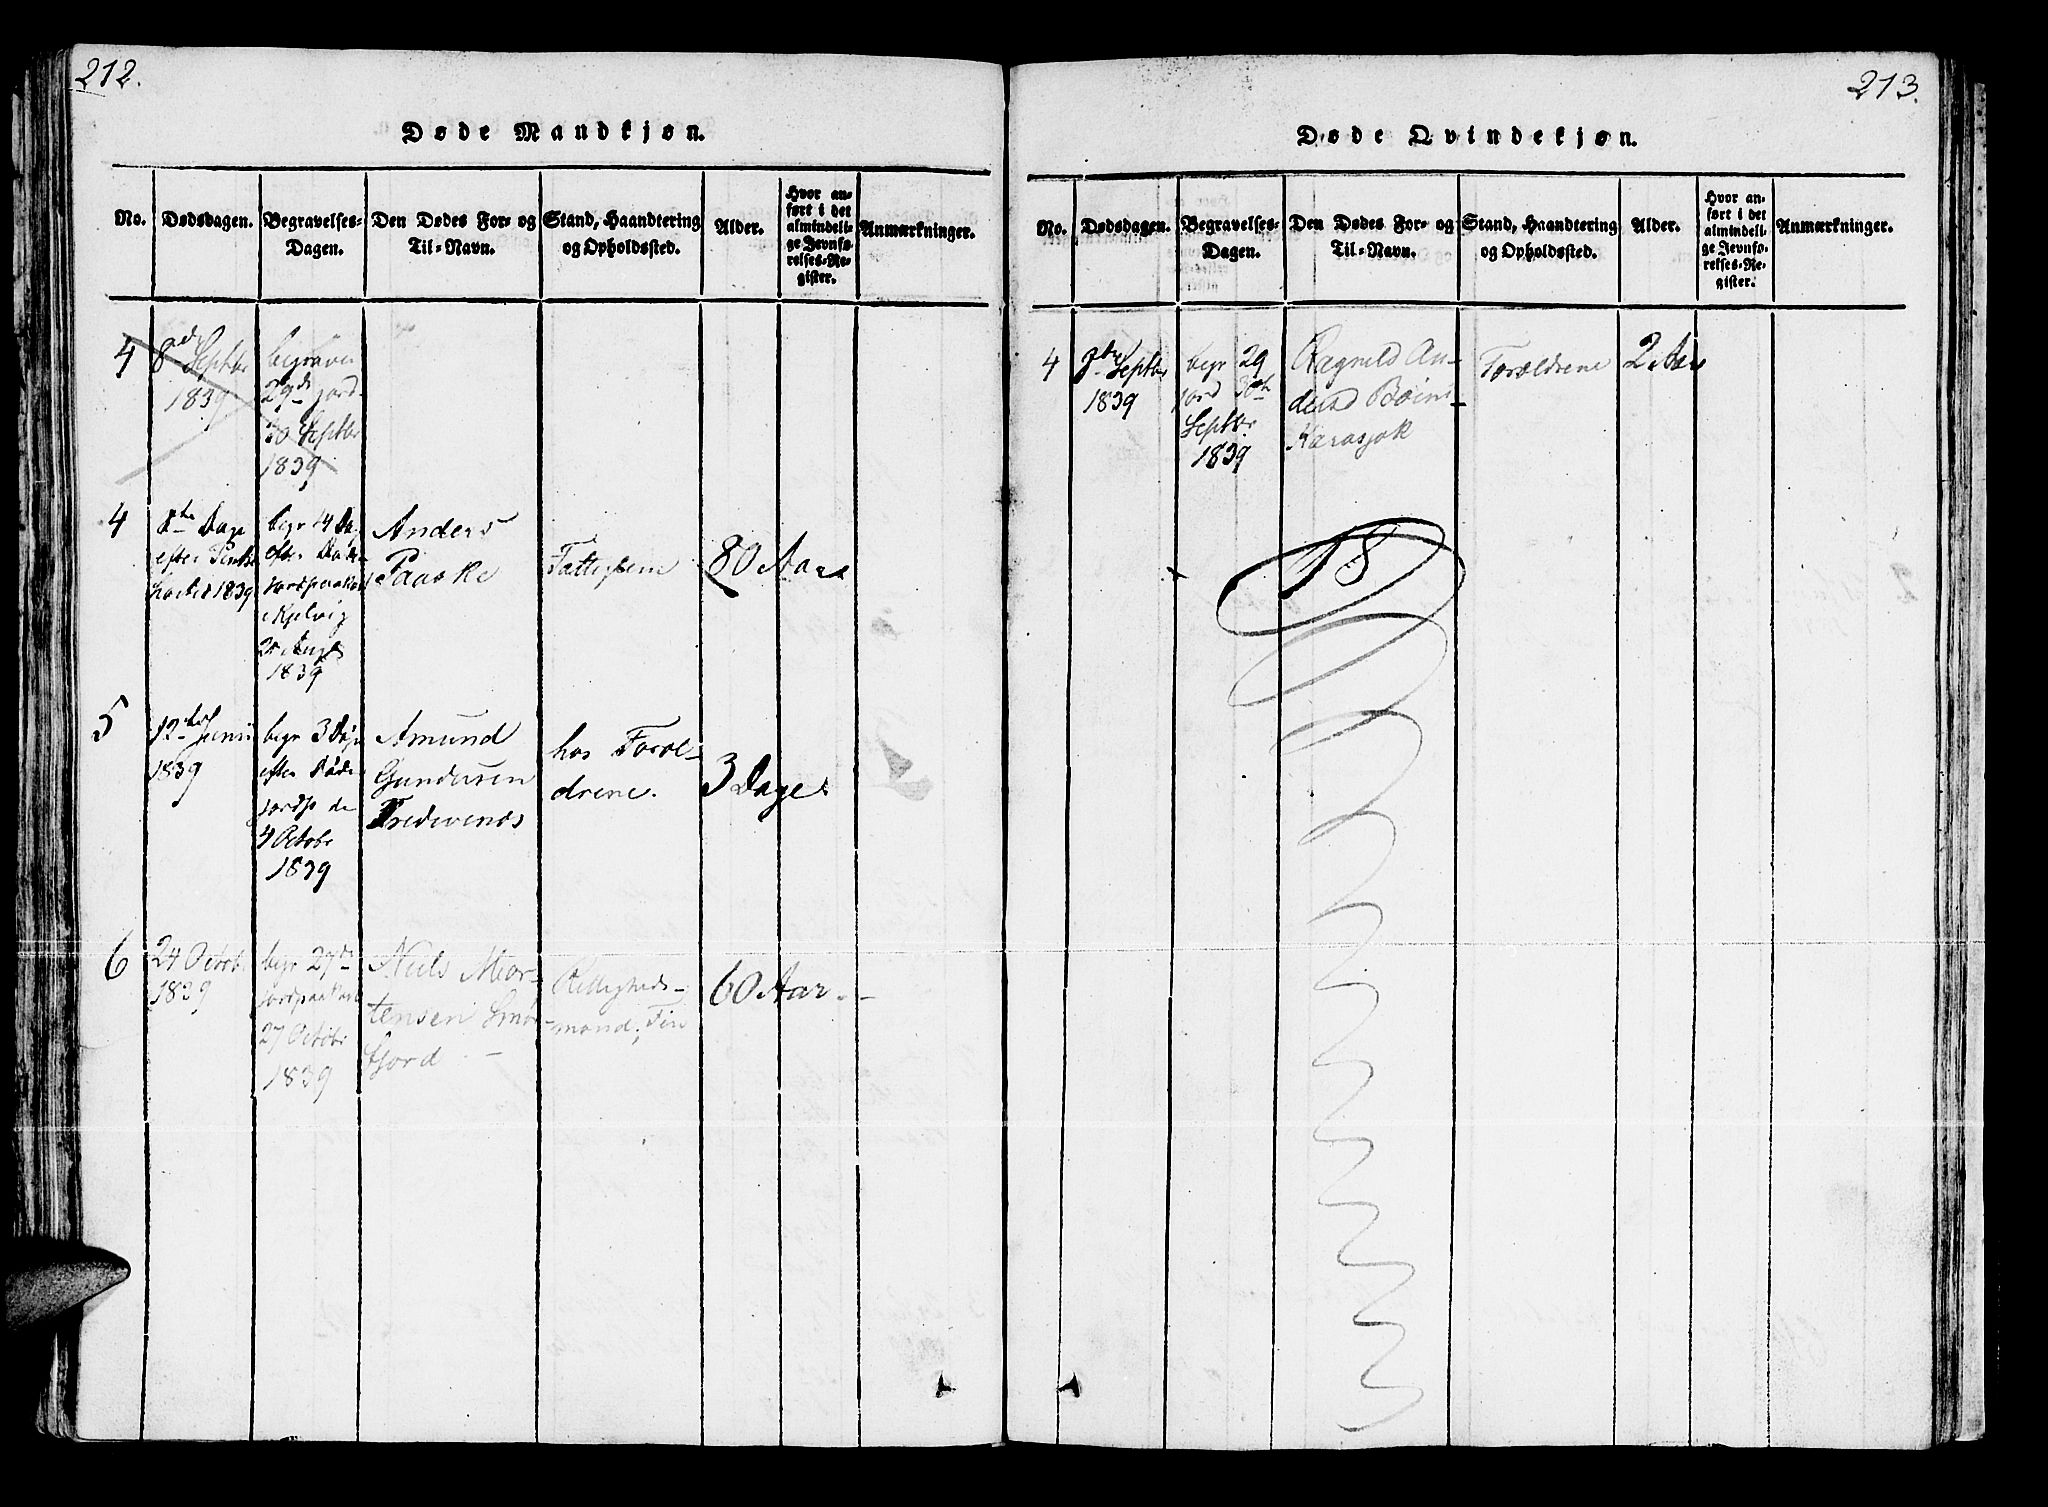 212.
Døde Mandkjøn.
No.
Dødsdagen.
Begravelses-
Dagen.
Den Dødes For- og
Til-Navn.
Stand, Haandtering
og Opholdssted.
Alder.
Hvor an-
ført i det
almindeli-
ge Jevnfø-
relses-Re-
gister.
Anmærkninger.
4
8de Septbr
1839
begraven
29de jord
30 Septbr
1839
4
Dage
efter
1839
begr 14 Da
efter
Kjelvig
Aug
1839
Anders
Paaske
Fattiglem
80 Aar
5
12te Junii
1839
begr 3 Dage
efter Døde
jordfs de
4 Octobr
1839
Amund
Gundersen
Tredivenæs
hos Foræl-
drene.
3 Dage
6
24 Octobr
1839
begr 27de
27 Octobr
1839
Niels Mor-
tensen Smør-
fjord -
Rettigheds-
mand, Fin
60 Aar. -
213.
Døde Qvindekjøn.
No.
Dødsdagen.
Begravelses-
Dagen.
Den Dødes For- og
Til-Navn.
Stand, Haandtering
og Opholdssted.
Alder.
Hvor an-
ført i det
almindeli-
ge Jevnfø-
relses-Re-
gister.
Anmærkninger.
4
Septbr
1839
begr 29
jord 30te
Septbr
1839
Ragnild An-
Karasjok
Forældrene
2 Aar
18